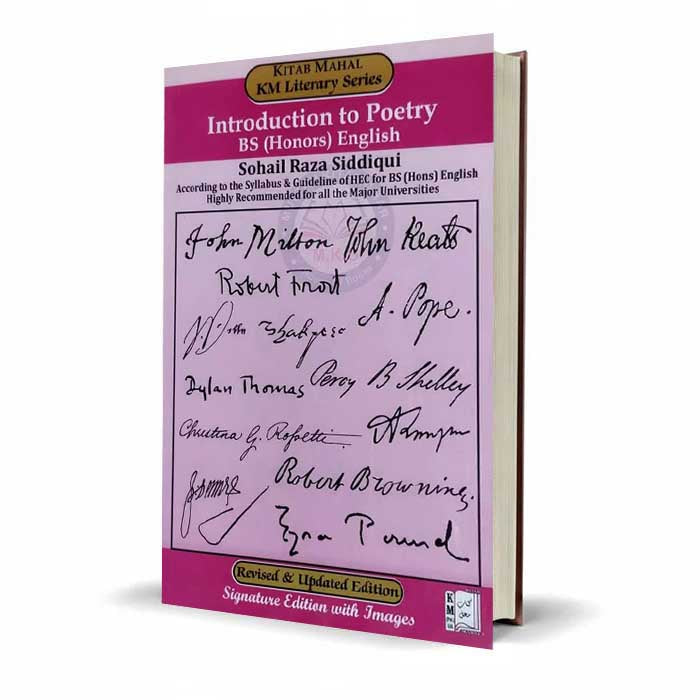 KITAB MAHAL
KM Literary Series
Introduction to Poetry
BS (Honors) English
Sohail Raza Siddiqui
According to the Syllabus & Guideline of HEC for BS (Hons) English
Highly Recommended for all the Major Universities
John Milton John Keats
Robert Frost
A. Pope.
Dylan Thomas Percy B Shelley
Christina G. Rossetti
Robert Browning
Ezra Pound
Revised & Updated Edition
Signature Edition with Images
KM